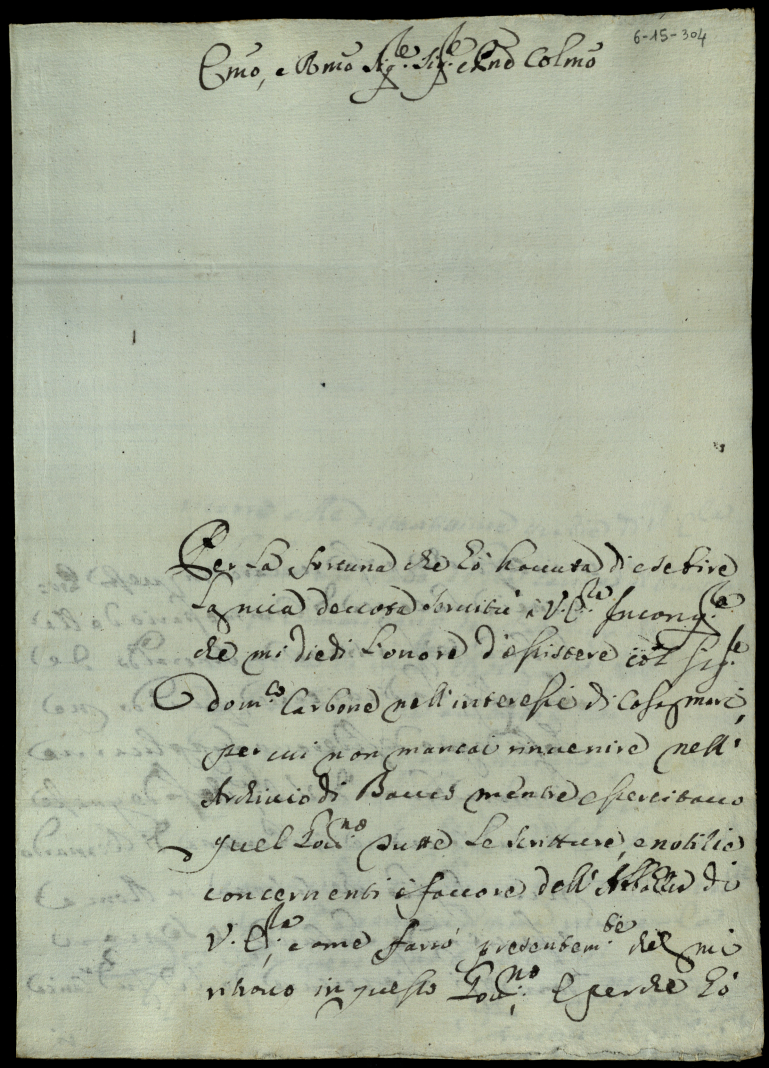 6-15-304
Emo, e Rmo Sig.re Sig.re e Pne Colmo
Per la fortuna che hò havuta di esebire
la mia devota servitù à V.E.za In cong.za
che mi diedi l'onore d'assistere col Sig.re
dom.co Carbone nell'interesse di Casamari
per cui non mancai rinvenire nell'
Archivio di Bauco mentre esercitavo
quel Gov.no tutte le scritture, e notitie
concernenti à favore dell' di
V. E.za, come farò presentem.te che mi
ritrovo in questo Gov.no, E perche hò